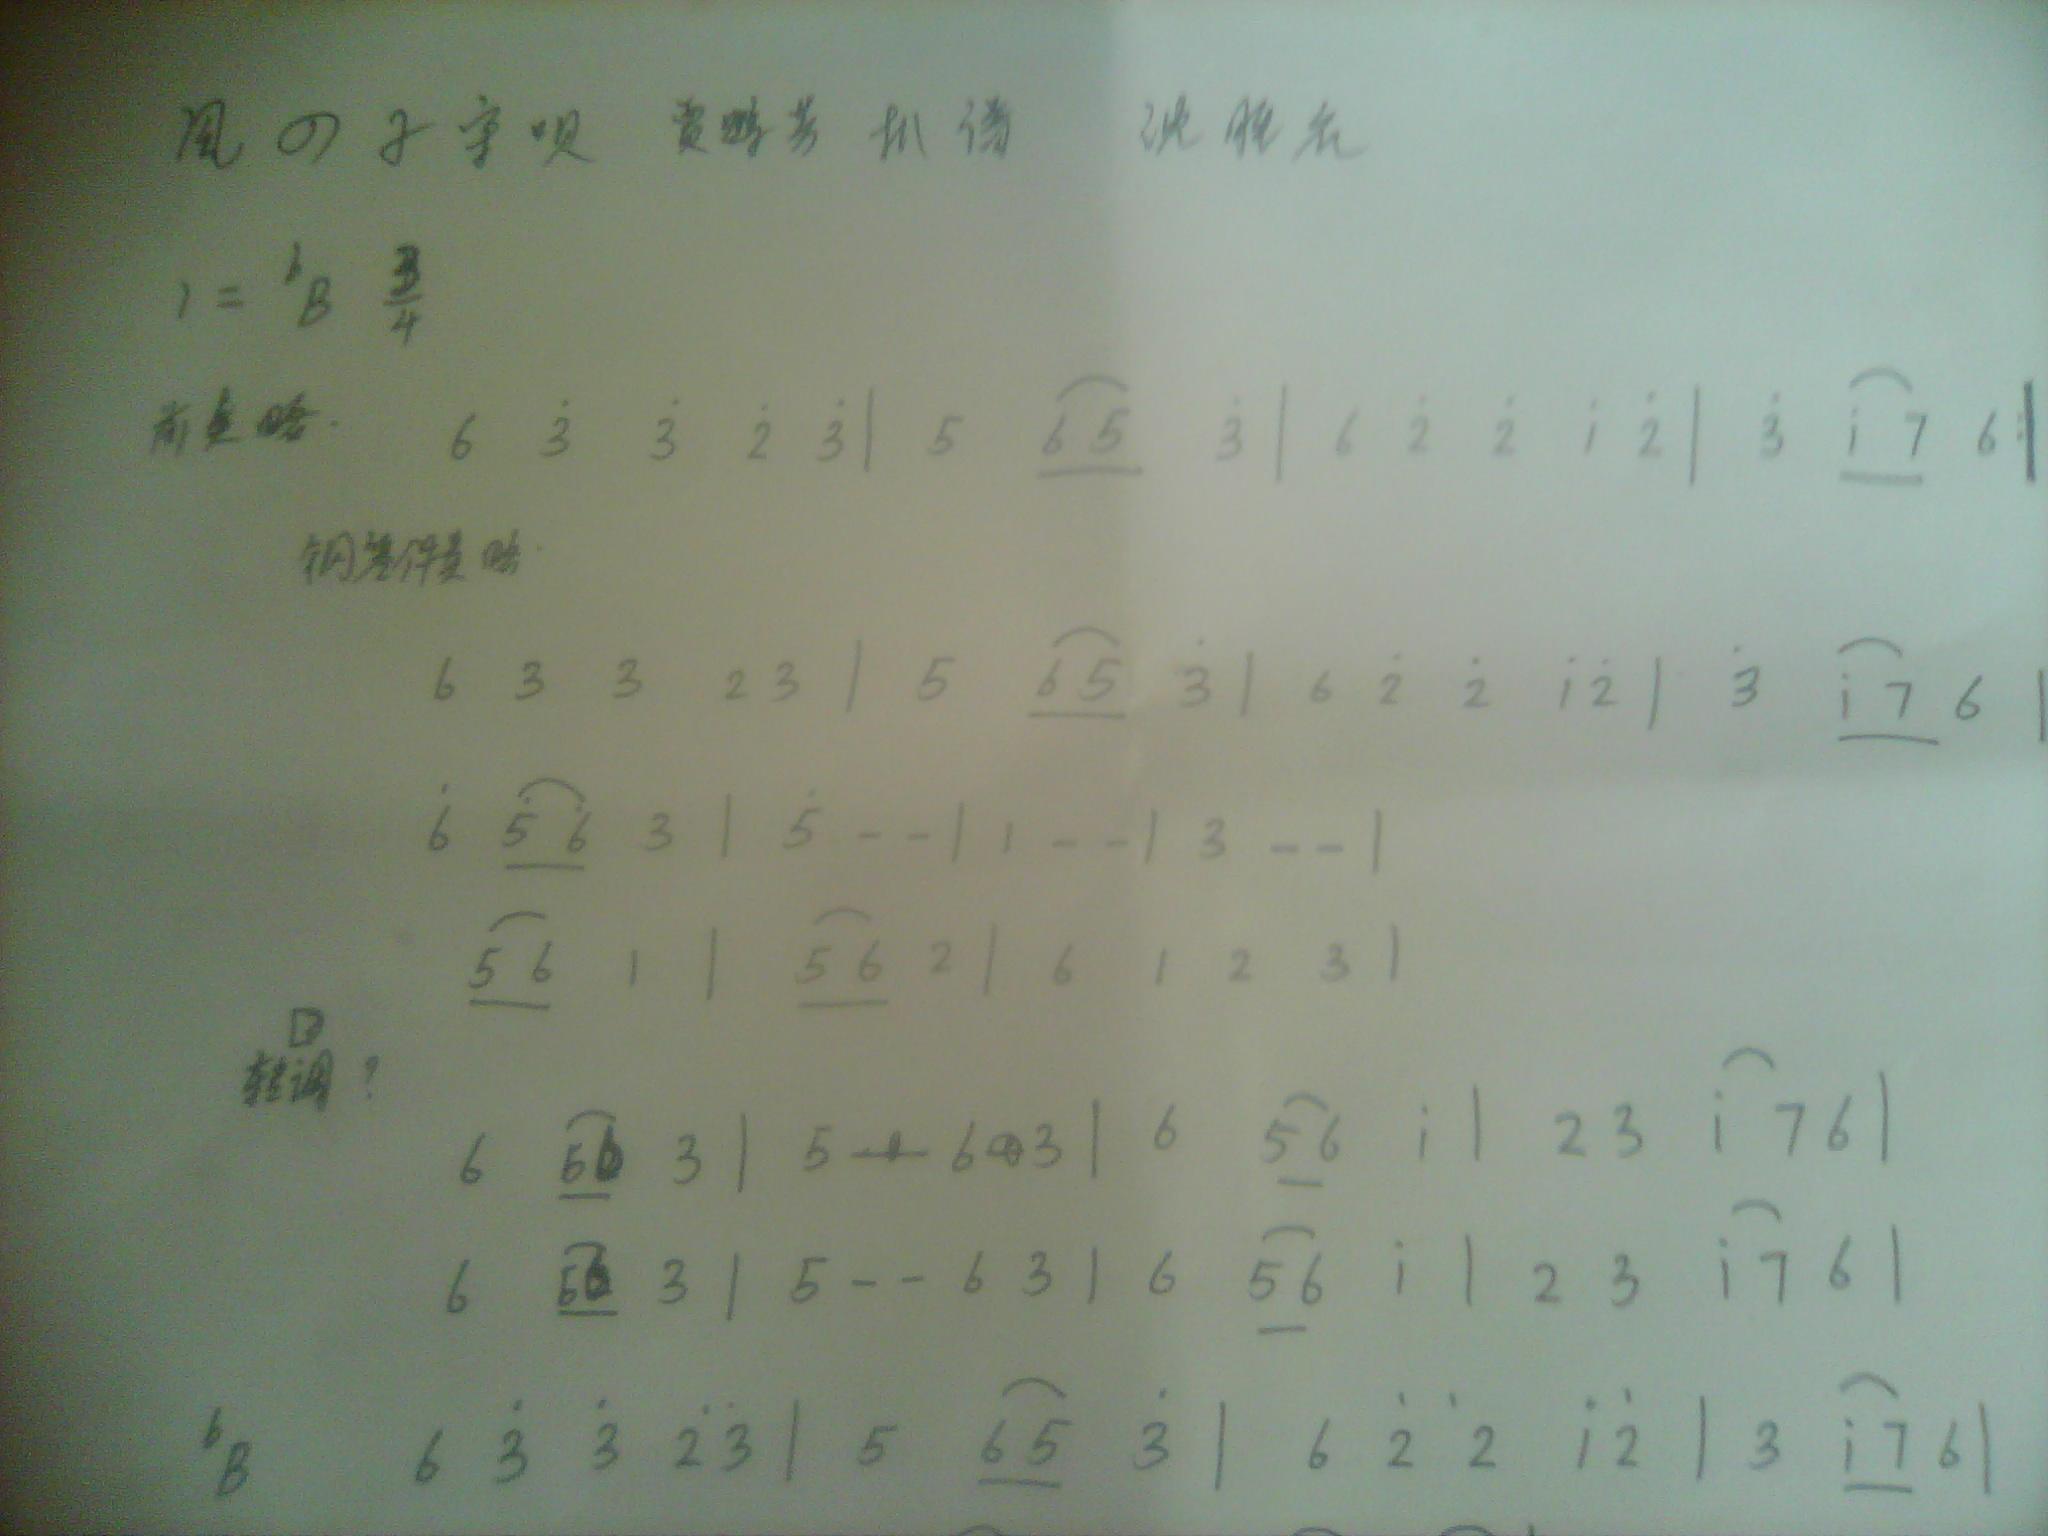 風の子守唄 扒谱
1 = ♭B 3/4
前奏略. 6 3̇ 3̇ 2̇ 3̇ | 5 6 5 3̇ | 6 2̇ 2̇ 1̇ 2̇ | 3̇ 1̇ 7 6 :|
钢琴伴奏略.
6 3 3 2 3 | 5 6 5 3̇ | 6 2̇ 2̇ 1̇ 2̇ | 3̇ 1̇ 7 6 |
6̇ 5̇ 6̇ 3 | 5̇ - - | 1 - - | 3 - - |
5 6 1 | 5 6 2 | 6 1 2 3 |
转调?
6 5 6 3 | 5 6 3 | 6 5 6 1̇ | 2 3 1̇ 7 6 |
6 5 6 3 | 5 - - 6 3 | 6 5 6 1̇ | 2 3 1̇ 7 6 |
♭B 6 3̇ 3̇ 2̇ 3̇ | 5 6 5 3̇ | 6 2̇ 2̇ 1̇ 2̇ | 3 1̇ 7 6 |